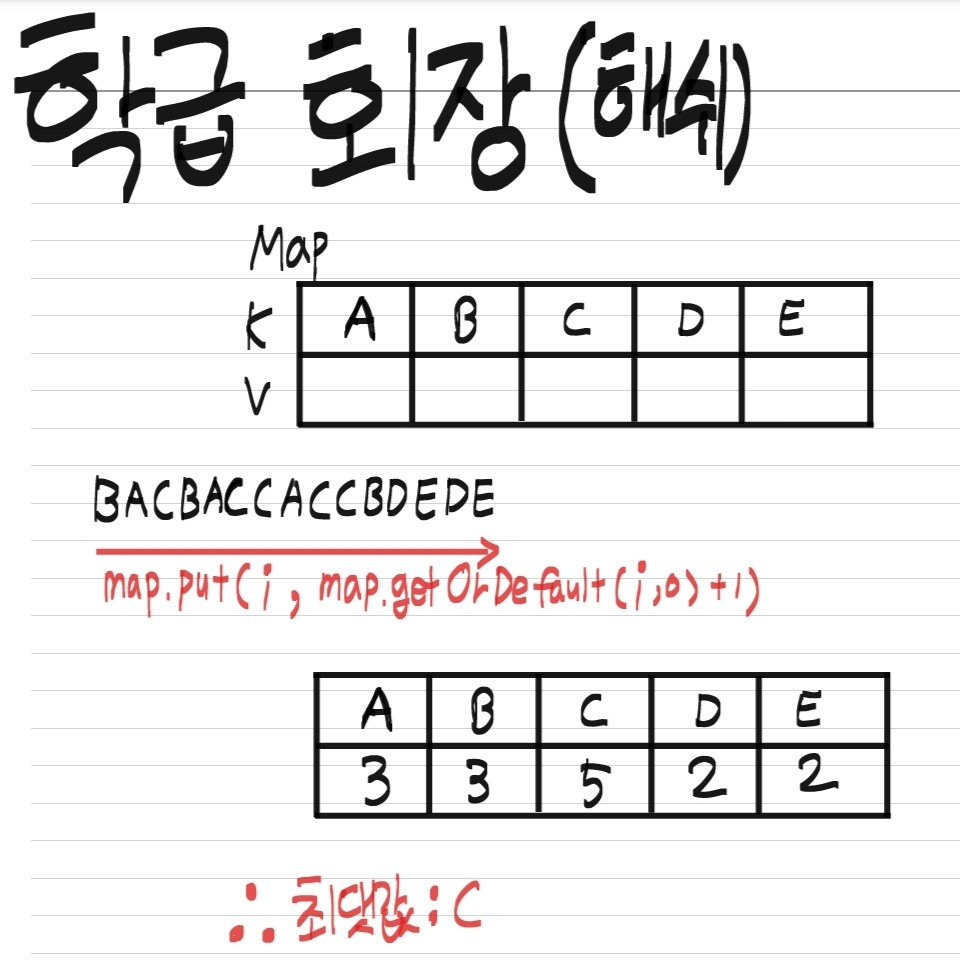 학급 회장(해쉬)
Map
K A B C D E
V
BACBACCACCBDEDE
map.put(i, map.getOrDefault(i,0)+1)
A B C D E
3 3 5 2 2
∴ 최댓값 : C